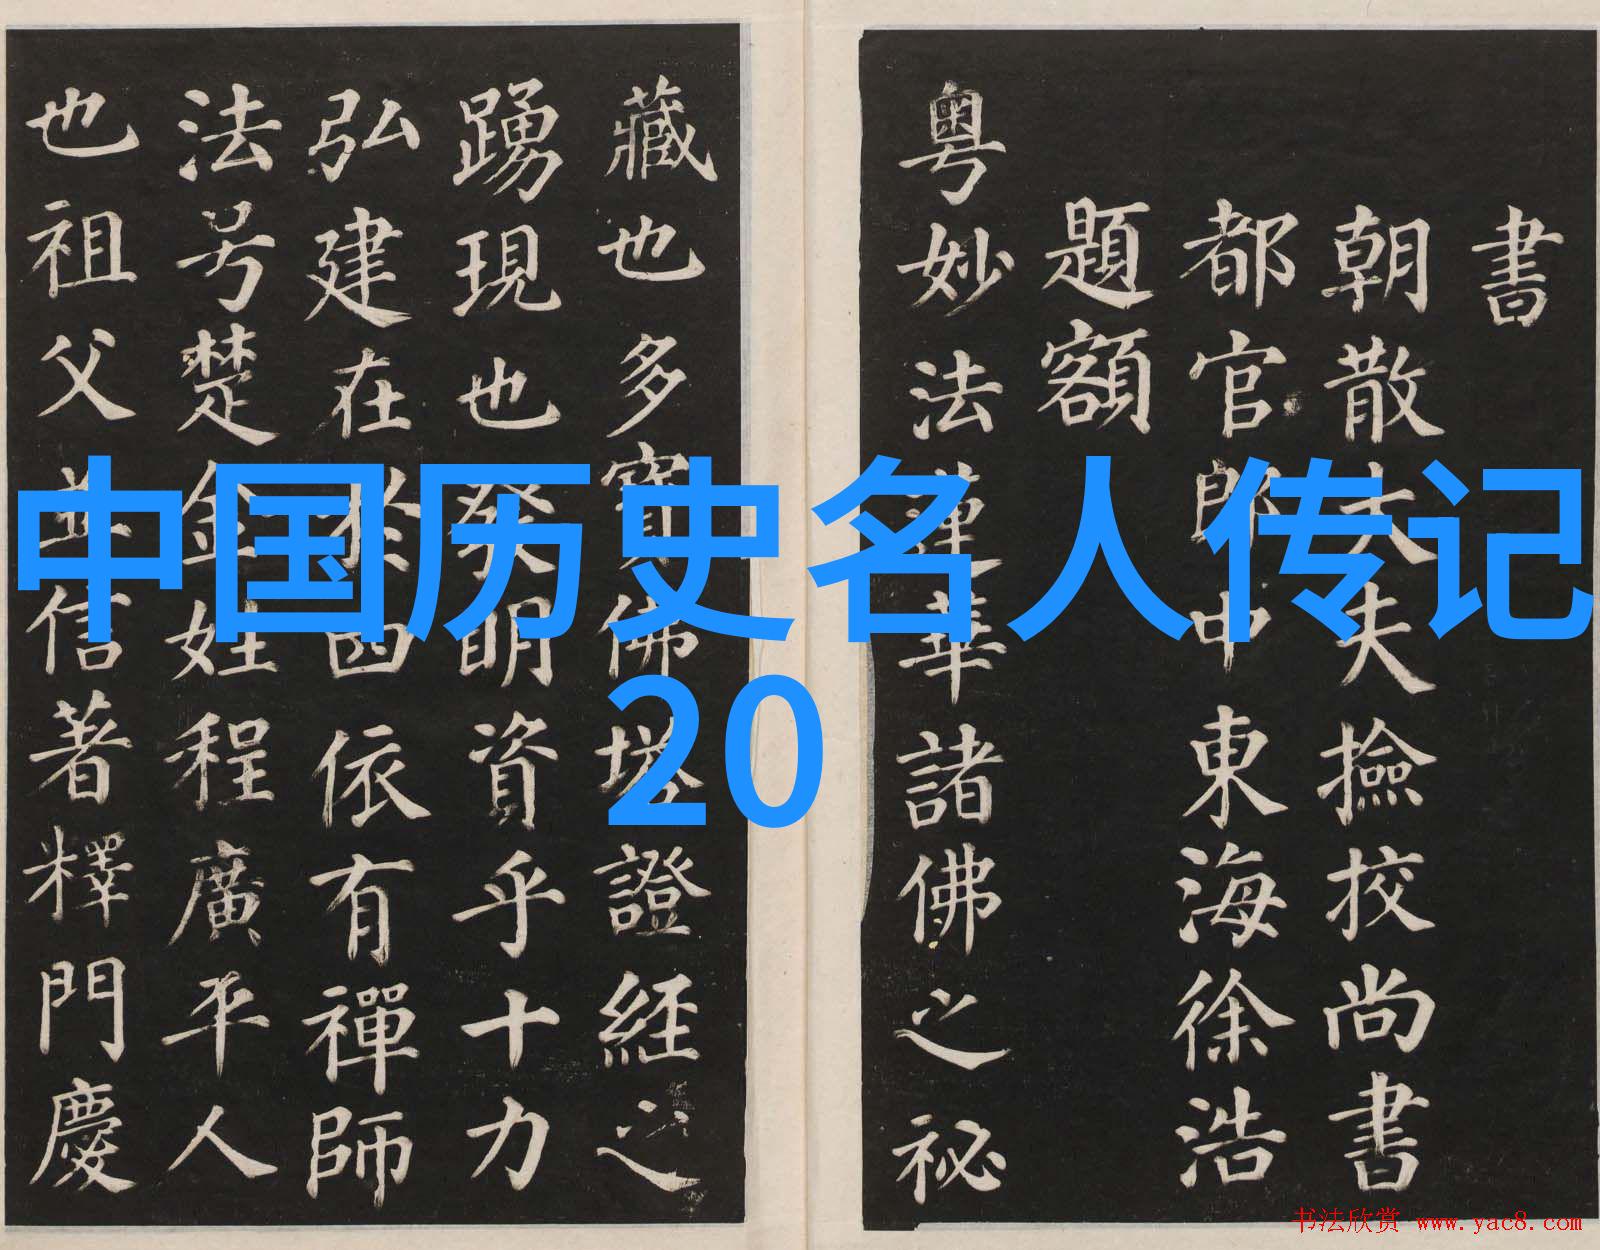 書
朝散大夫撿挍尚書
都官郎中東海徐浩
題額
粵妙法蓮華諸佛之祕
藏也多寶佛塔證經之
踴現也發明資乎十力
弘建在於四依有禪師
法号楚金姓程廣平人
也祖父並信著釋門慶
中国历史名人传记
20
书法欣赏 www.yac8.com